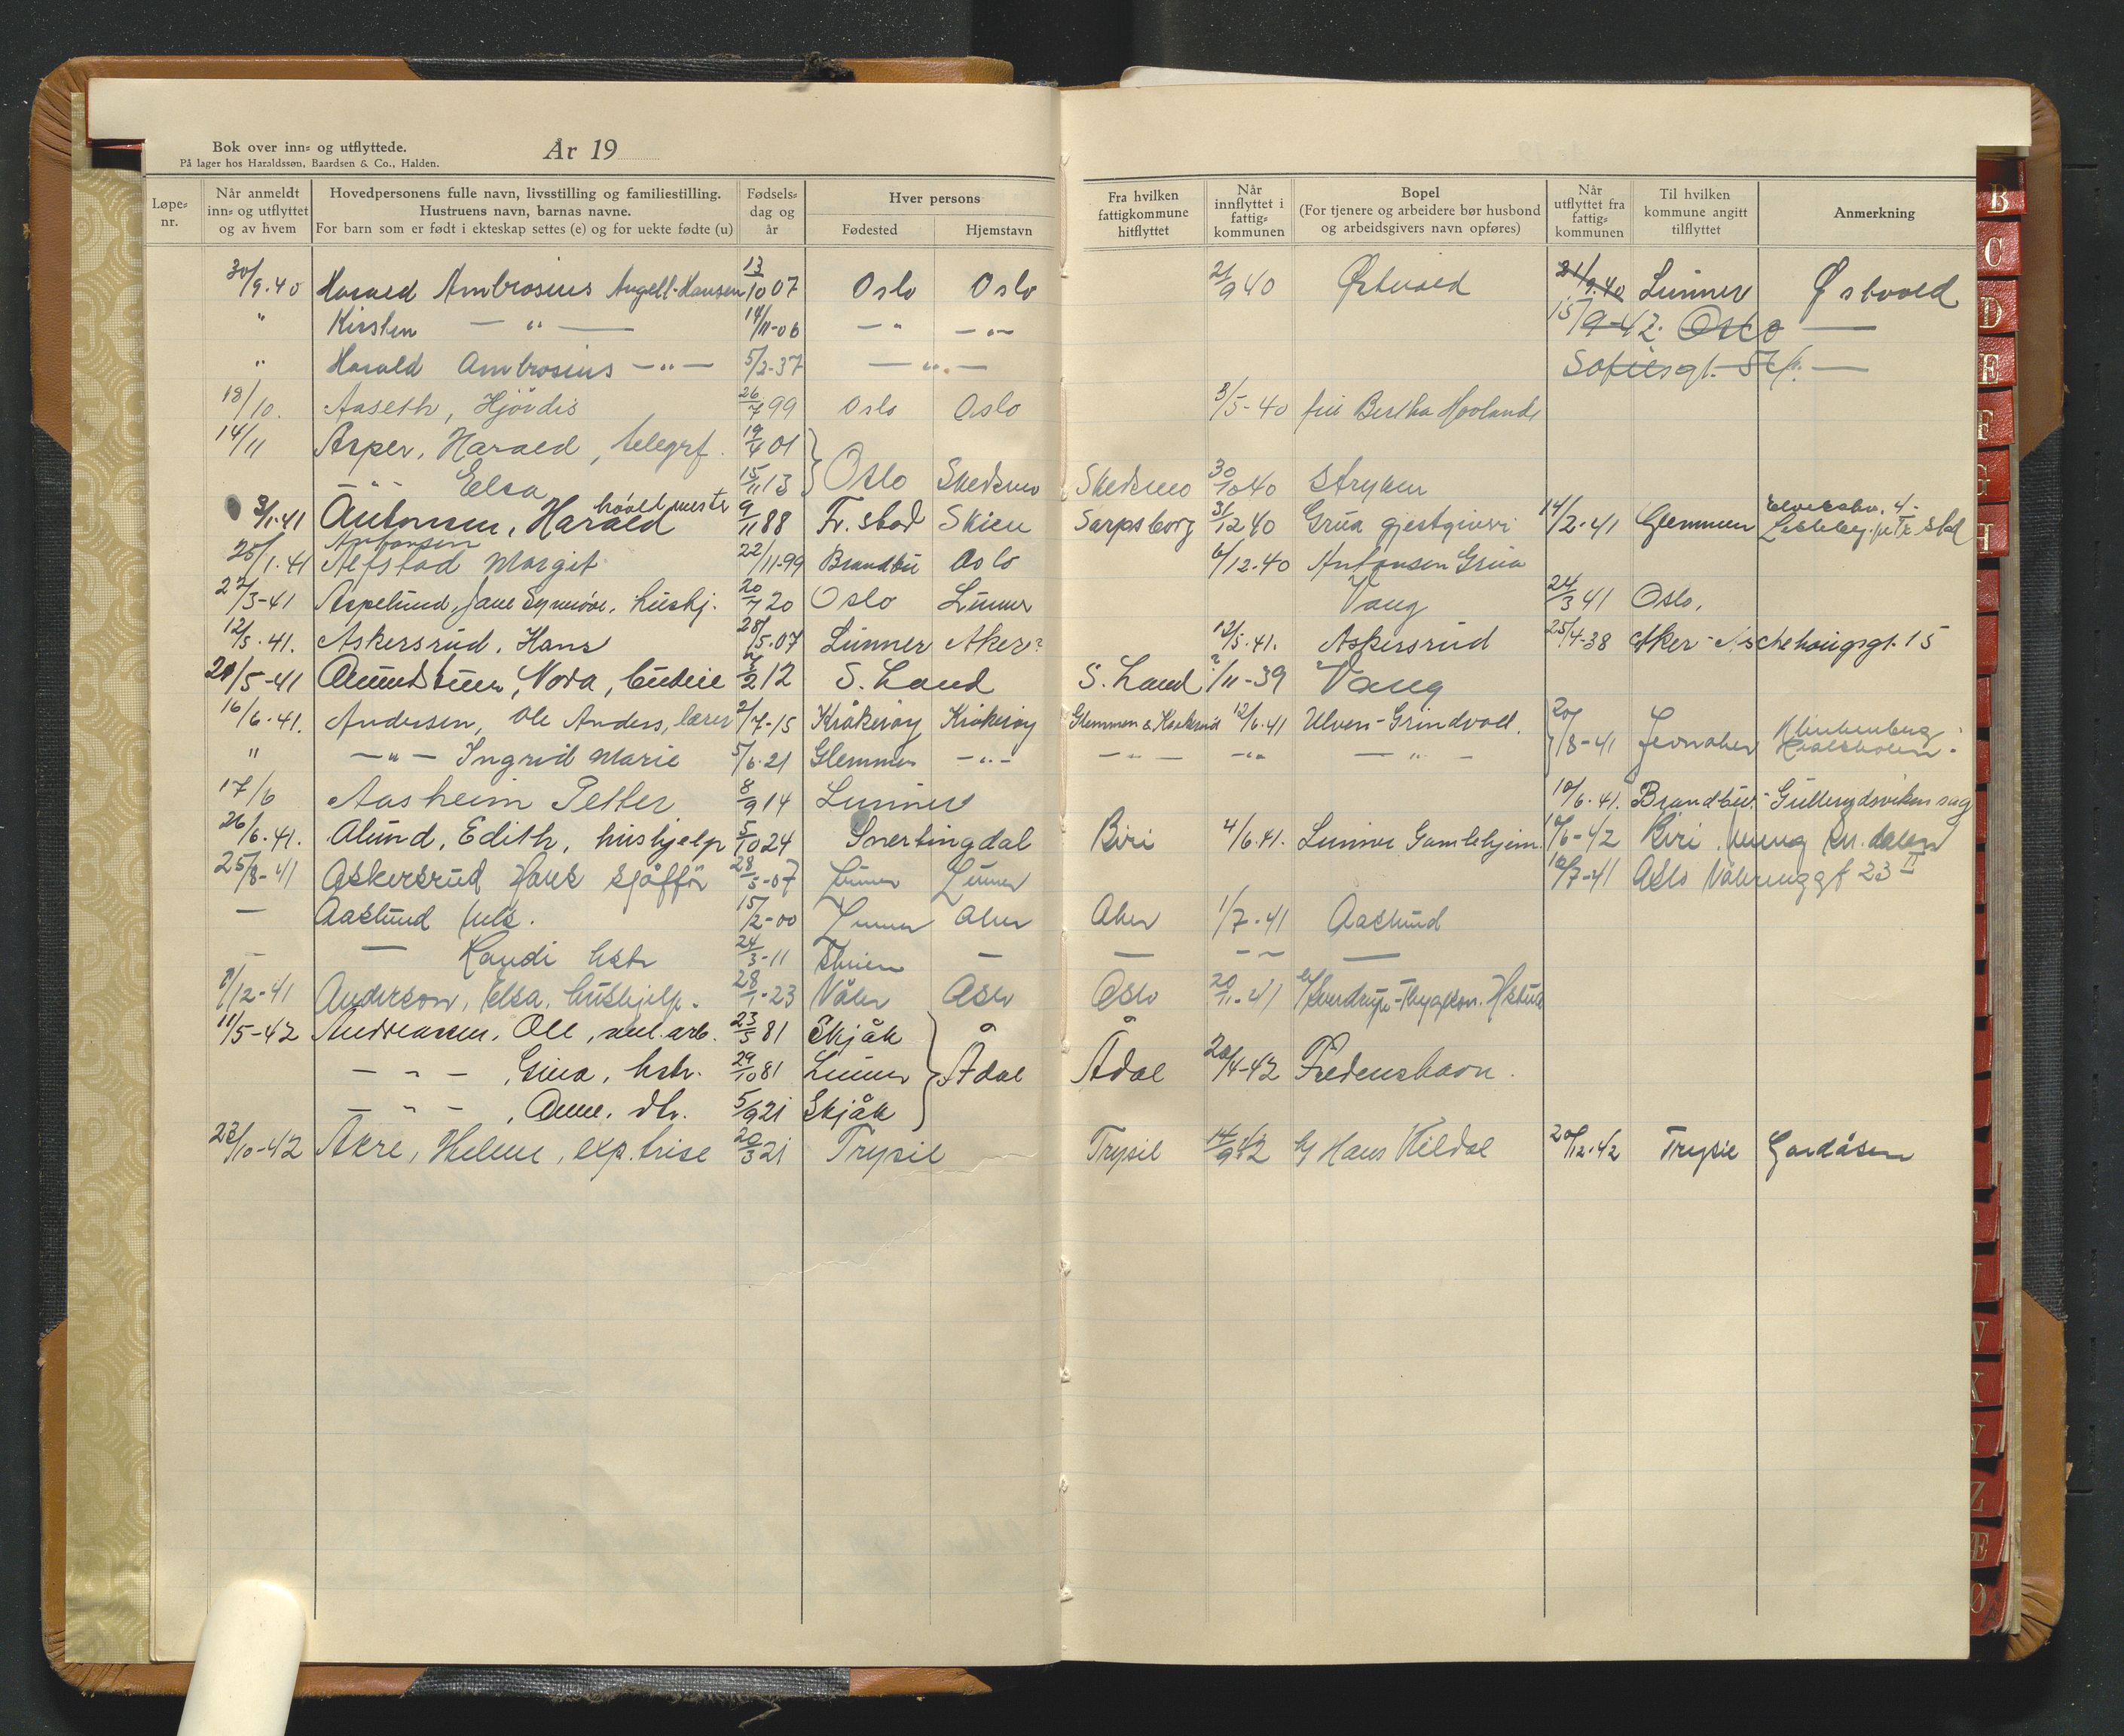 Bok over inn- og utflyttede.
På lager hos Haraldssøn, Baardsen & Co., Halden.
År 19
Løpe-nr.
Når anmeldt inn- og utflyttet og av hvem
Hovedpersonens fulle navn, livsstilling og familiestilling. Hustruens navn, barnas navne. For barn som er født i ekteskap settes (e) og for uekte fødte (u)
Fødsels-dag og år
Hver persons
Fødested
Hjemstavn
Fra hvilken fattigkommune hitflyttet
Når innflyttet i fattig-kommunen
Bopel (For tjenere og arbeidere bør husbond og arbeidsgivers navn opføres)
Når utflyttet fra fattig-kommunen
Til hvilken kommune angitt tilflyttet
Anmerkning
30/9.40 Harald Ambrosius Angell-Hansen 13/10 07 Oslo Oslo 21/9 40 Østvold 21/9.40 Lunner Østvold
" Kirsten — " — 14/11-06 — " — " — 15/9-42. Oslo —
" Harald Ambrosius — " — 5/2-37 — " — Sofiesgt. —
18/10. Aaseth, Hjördis 26/7 99 Oslo Oslo 3/5-40 Bertha Hovland
14/11 Asper, Harald, telegrf. 19/4 01
— " Elsa 15/11 13 Oslo Skedsmo Skedsmo 30/10 40 Stryken
3/1.41 Antonsen, Harald 9/11 88 Fr.stad Skien Sarpsborg 31/12 40 Grua gjestgiveri 14/2-41 Glemmen
Antonsen
25/1.41 Alfstad Margit 22/11-99 Brandbu Oslo 6/12.40 Antonsen Grua
27/3-41 Aspelund, Jane Synnöve, hushj. 20/7 20 Oslo Lunner Vang 24/3 41 Oslo.
12/5.41. Askersrud, Hans 28/5.07 Lunner Aker? 12/5.41. Askersrud 25/4-38 Aker - Aschehougsgt. 15
20/5-41 Amundsen, Nora, 2/12 S. Land S. Land ?/11-39 Vang
16/6.41. Andersen, Ole Anders, lærer 2/7-15 Kråkerøy Kråkerøy Glemmen & 12/6.41 Ulven-Grindvoll. 20/8-41 Jevnaker
" — " — Ingrid Marie 5/6.21 Glemmen — " — — " — — " — — " —
17/6 Aasheim Petter 8/9 14 Lunner 10/6.41. Brandbu.
26/6.41. Alund, Edith, hushjelp 5/10 24 Snertingdal Biri 4/6.41. Lunner Gamlehjem. 10/6-42 Biri
25/8-41 Askersrud Hans sjåffør 28/5-07 Lunner Lunner 10/7-41 Oslo 23 II
— Aaslund Nils. 15/2-00 Lunner Aker Aker 1/7-41 Aaslund
— — Randi hstr 24/3-11 — — — — —
8/12-41 Anderson, Elsa, hushjelp. 28/1-23 Våler Oslo Oslo 20/11-41
11/5-42 Andreassen, Ole, arb. 23/5 81 Skjåk
— " — , Gina, hstr. 29/10 81 Lunner Ådal Ådal 20/4-42 Fredenshavn.
— " — , Anne, dtr. 5/9 21 Skjåk
23/10-42 Akre, Helene, exp.trise 20/3 21 Trysil Trysil 14/9 42 Hans Kildal 20/12.42 Trysil Gardåsen
B
C
D
E
F
G
H
J
V
K
Y
Z
Æ
Ø